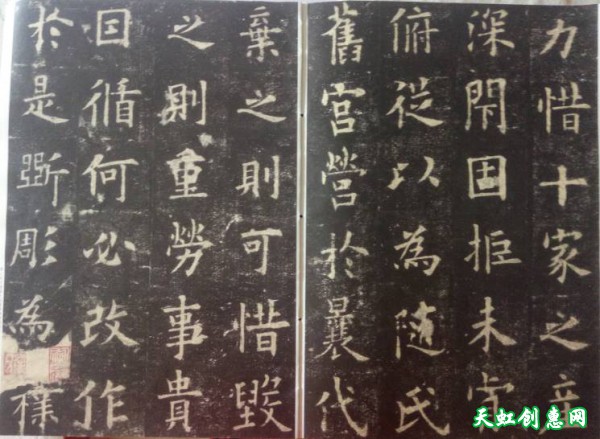 力惜十家之产
深閇固拒未肯
俯從以為隨氏
舊宮營於曩代
棄之則可惜毀
之則重勞事貴
因循何必改作
於是斲彫為樸
天虹创意网